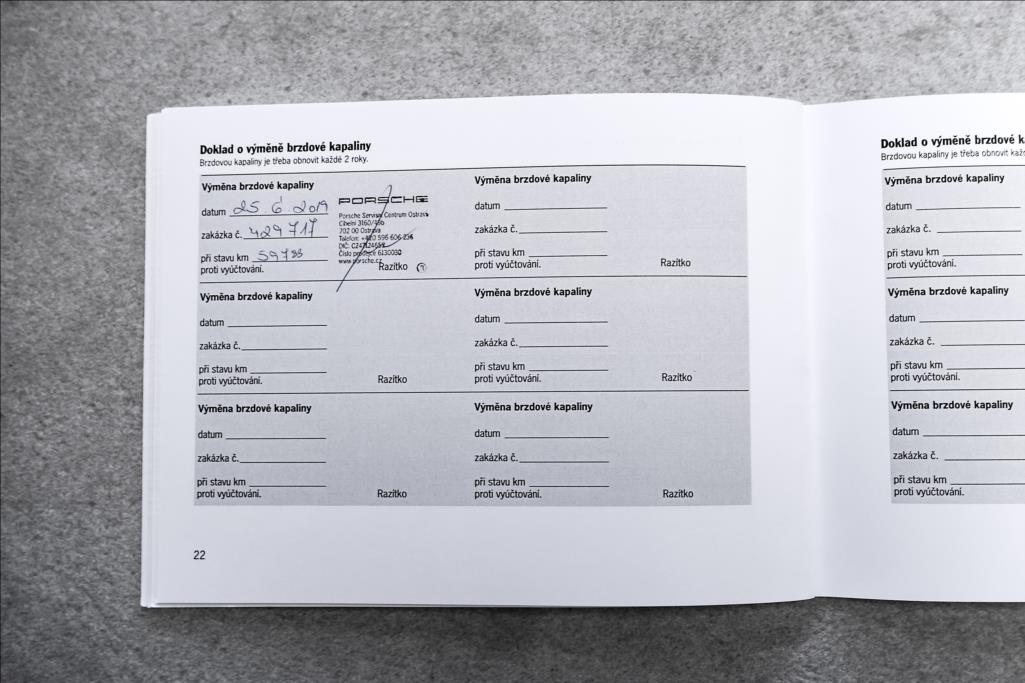 Doklad o výměně brzdové kapaliny
Brzdovou kapaliny je třeba obnovit každé 2 roky.
Výměna brzdové kapaliny
datum 25. 6. 2019
zakázka č. 429717
při stavu km 59783
proti vyúčtování.
PORSCHE
Porsche Servisní Centrum Ostrava
Cihelní 3160/49b
702 00 Ostrava
Telefon: +420 596 606 236
DIČ:
Číslo prodejce 6130030
www.porsche.cz
Razítko
Výměna brzdové kapaliny
datum
zakázka č.
při stavu km
proti vyúčtování.
Razítko
Výměna brzdové kapaliny
datum
zakázka č.
při stavu km
proti vyúčtování.
Razítko
Výměna brzdové kapaliny
datum
zakázka č.
při stavu km
proti vyúčtování.
Razítko
Výměna brzdové kapaliny
datum
zakázka č.
při stavu km
proti vyúčtování.
Razítko
Výměna brzdové kapaliny
datum
zakázka č.
při stavu km
proti vyúčtování.
Razítko
22
Doklad o výměně brzdové k
Brzdovou kapaliny je třeba obnovit kaž
Výměna brzdové kapaliny
datum
zakázka č.
při stavu km
proti vyúčtování.
Výměna brzdové kapaliny
datum
zakázka č.
při stavu km
proti vyúčtování.
Výměna brzdové kapaliny
datum
zakázka č.
při stavu km
proti vyúčtování.